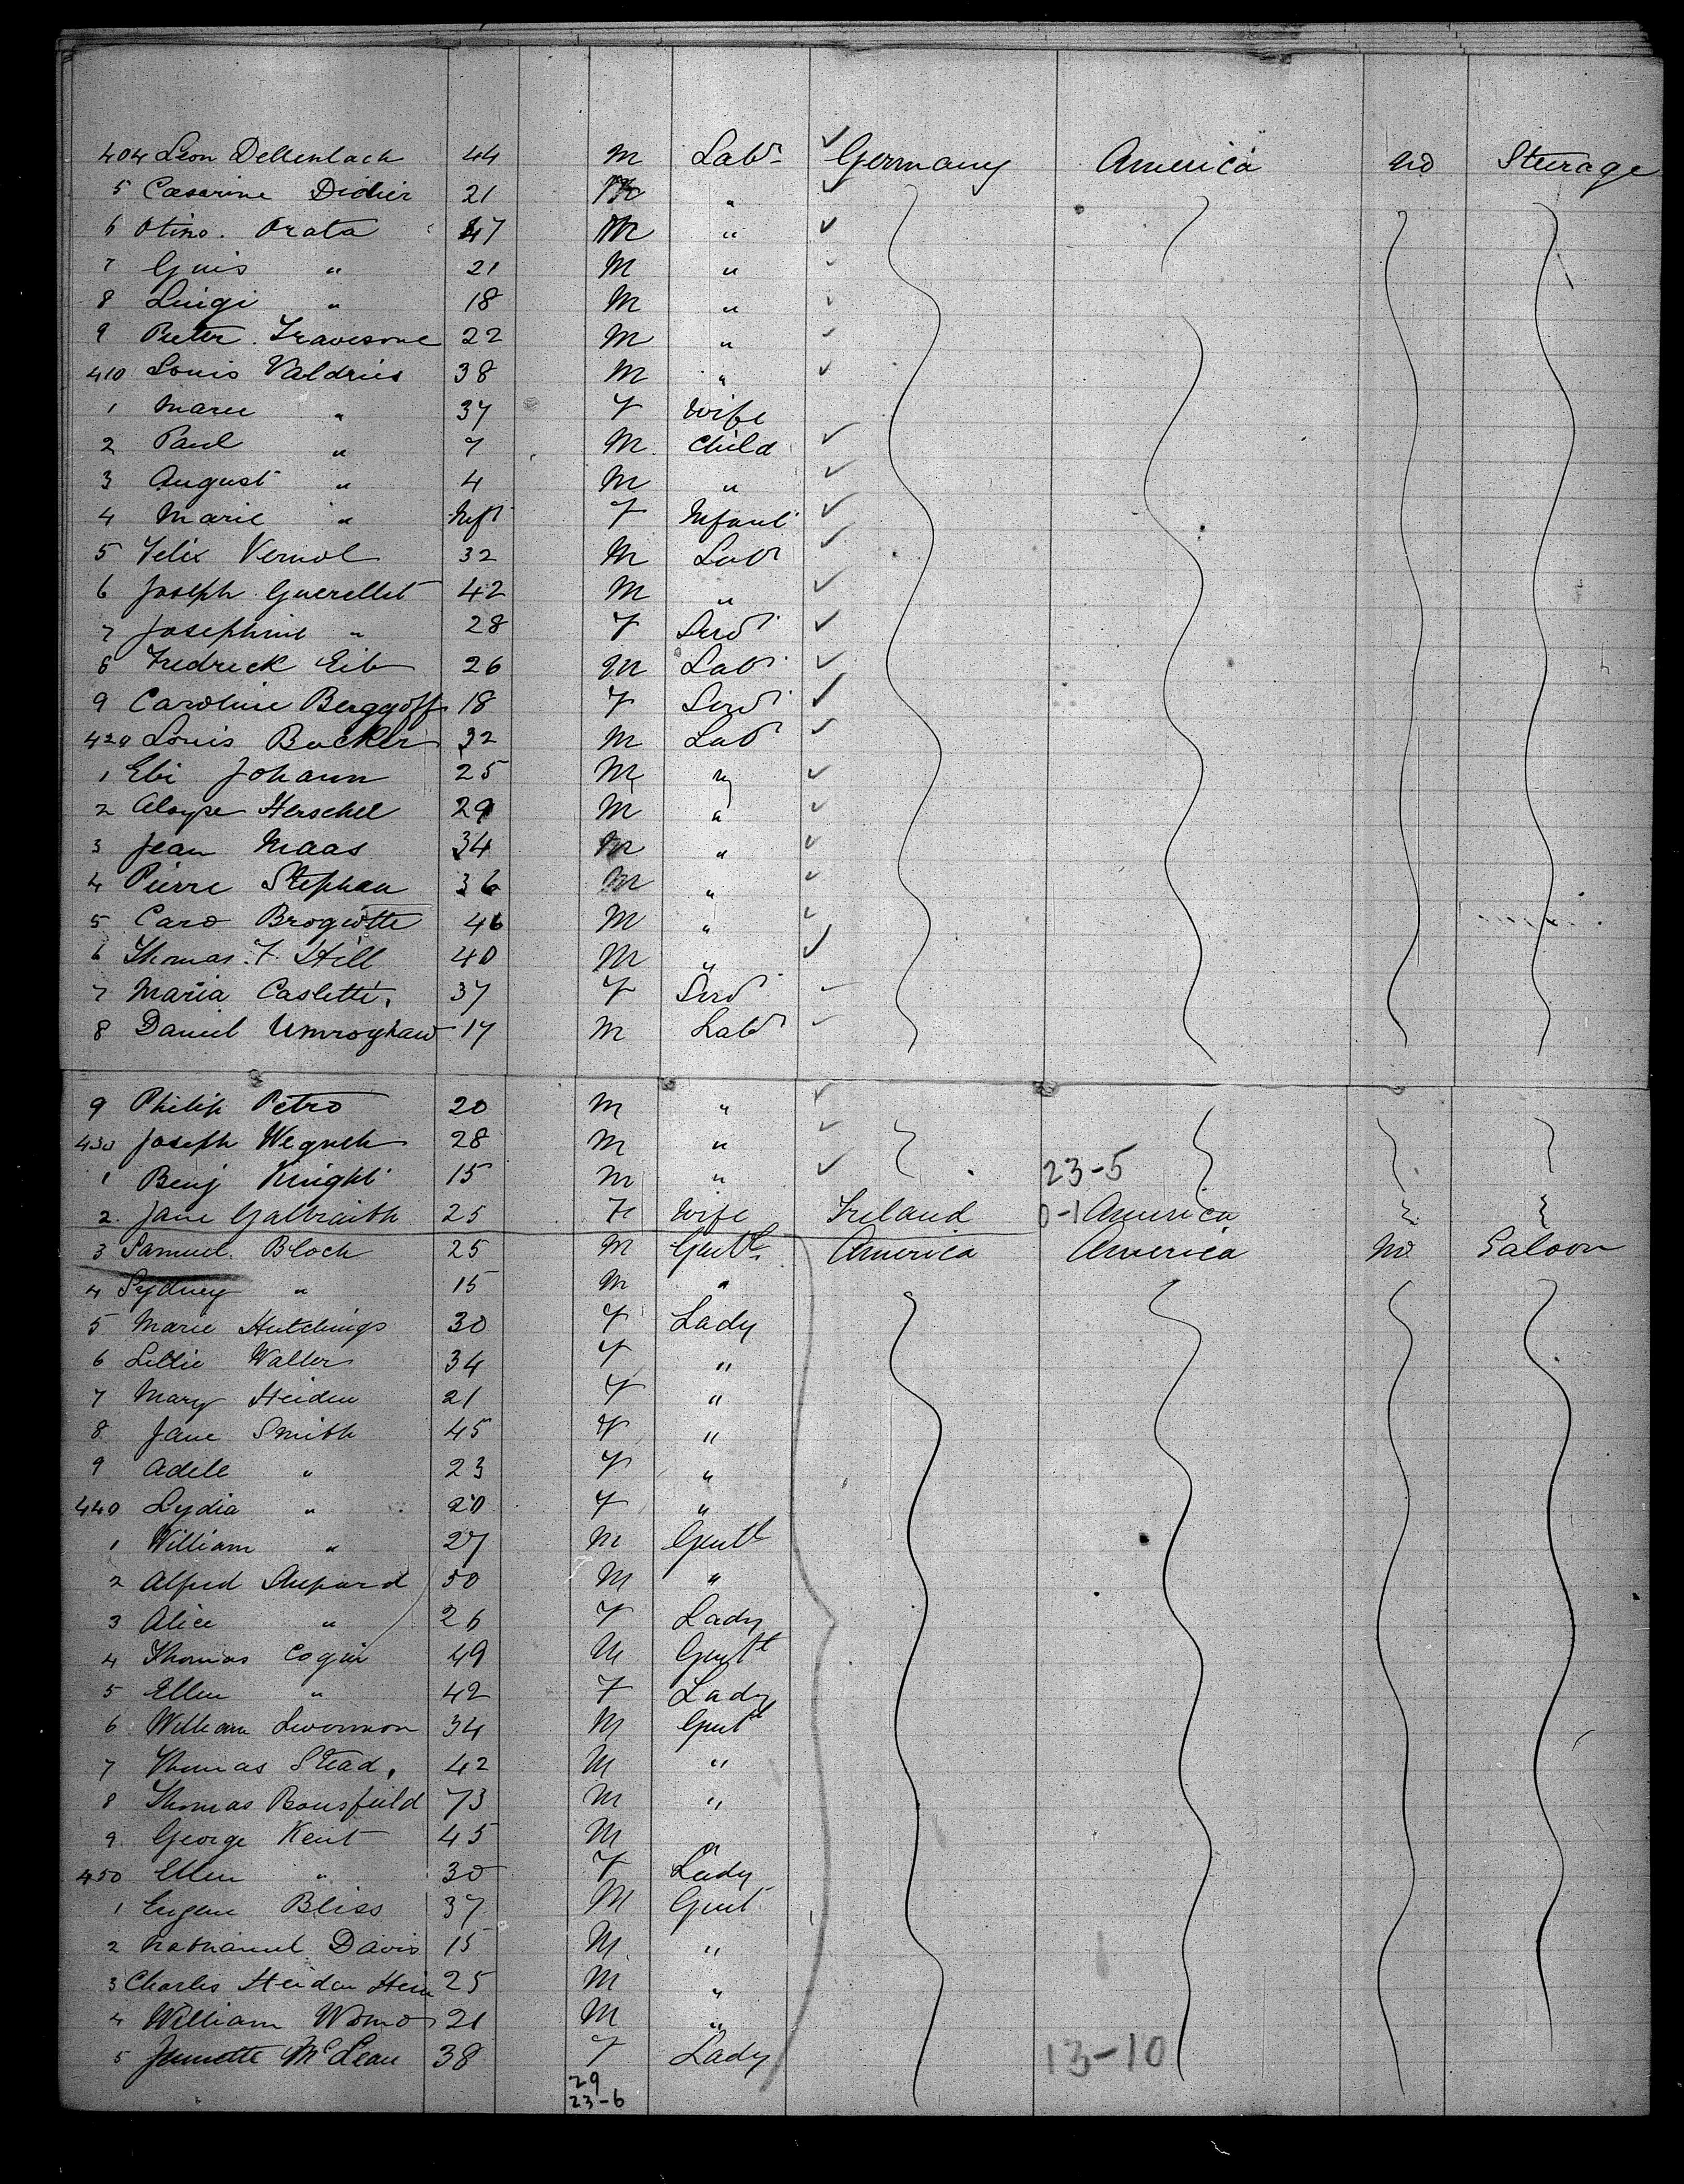 404 Leon Dellenbach 44 M Labr Germany America no Steerage
5 Casarine Didier 21 M "
6 Otino. Orata 47 M "
7 Guis " 21 M "
8 Luigi " 18 M "
9 Pieter. Travesone 22 M "
410 Louis Valdries 38 M "
1 Marie " 37 F Wife
2 Paul " 7 M Child
3 August " 4 M "
4 Marie " Inft F Infant
5 Felix Vernol 32 M Labr
6 Joseph Guerellet 42 M "
7 Josephine " 28 F Servt
8 Fredrick Eib 26 M Labr
9 Caroline Berggoff 18 F Servt
420 Louis Backer 32 M Labr
1 Ebi Johann 25 M "
2 Aloyse Herschel 29 M "
3 Jean Maas 34 M "
4 Pierre Stephan 36 M "
5 Caro Brogiotte 46 M "
6 Thomas. F. Hill 40 M "
7 Maria Casletti, 37 F Servt
8 Daniel 17 M Labr
9 Philip Petro 20 M "
430 Joseph 28 M "
1 Benj Knight 15 M " 23-5
2. Jane Galbraith 25 F Wife Ireland 0-1 America
3 Samuel Bloch 25 M Gentl America America no Saloon
4 Sydney " 15 M "
5 Marie Hutchings 30 F Lady
6 Lillie Walters 34 F "
7 Mary Heiden 21 F "
8 Jane Smith 45 F "
9 Adele " 23 F "
440 Lydia " 20 F "
1 William " 27 M Gentl
2 Alfred Shepard 50 M "
3 Alice " 26 F Lady
4 Thomas Cogin 49 M Gentl
5 Ellen " 42 F Lady
6 William 34 M Gent
7 Thomas Stead, 42 M "
8 Thomas Bousfield 73 M "
9 George Kent 45 M "
450 Ellen " 30 F Lady
1 Eugene Bliss 37 M Gent
2 Nathaniel Davis 15 M "
3 Charles Heiden Hein 25 M "
4 William 21 M "
5 Jennette McLean 38 F Lady 13-10
29
23-6